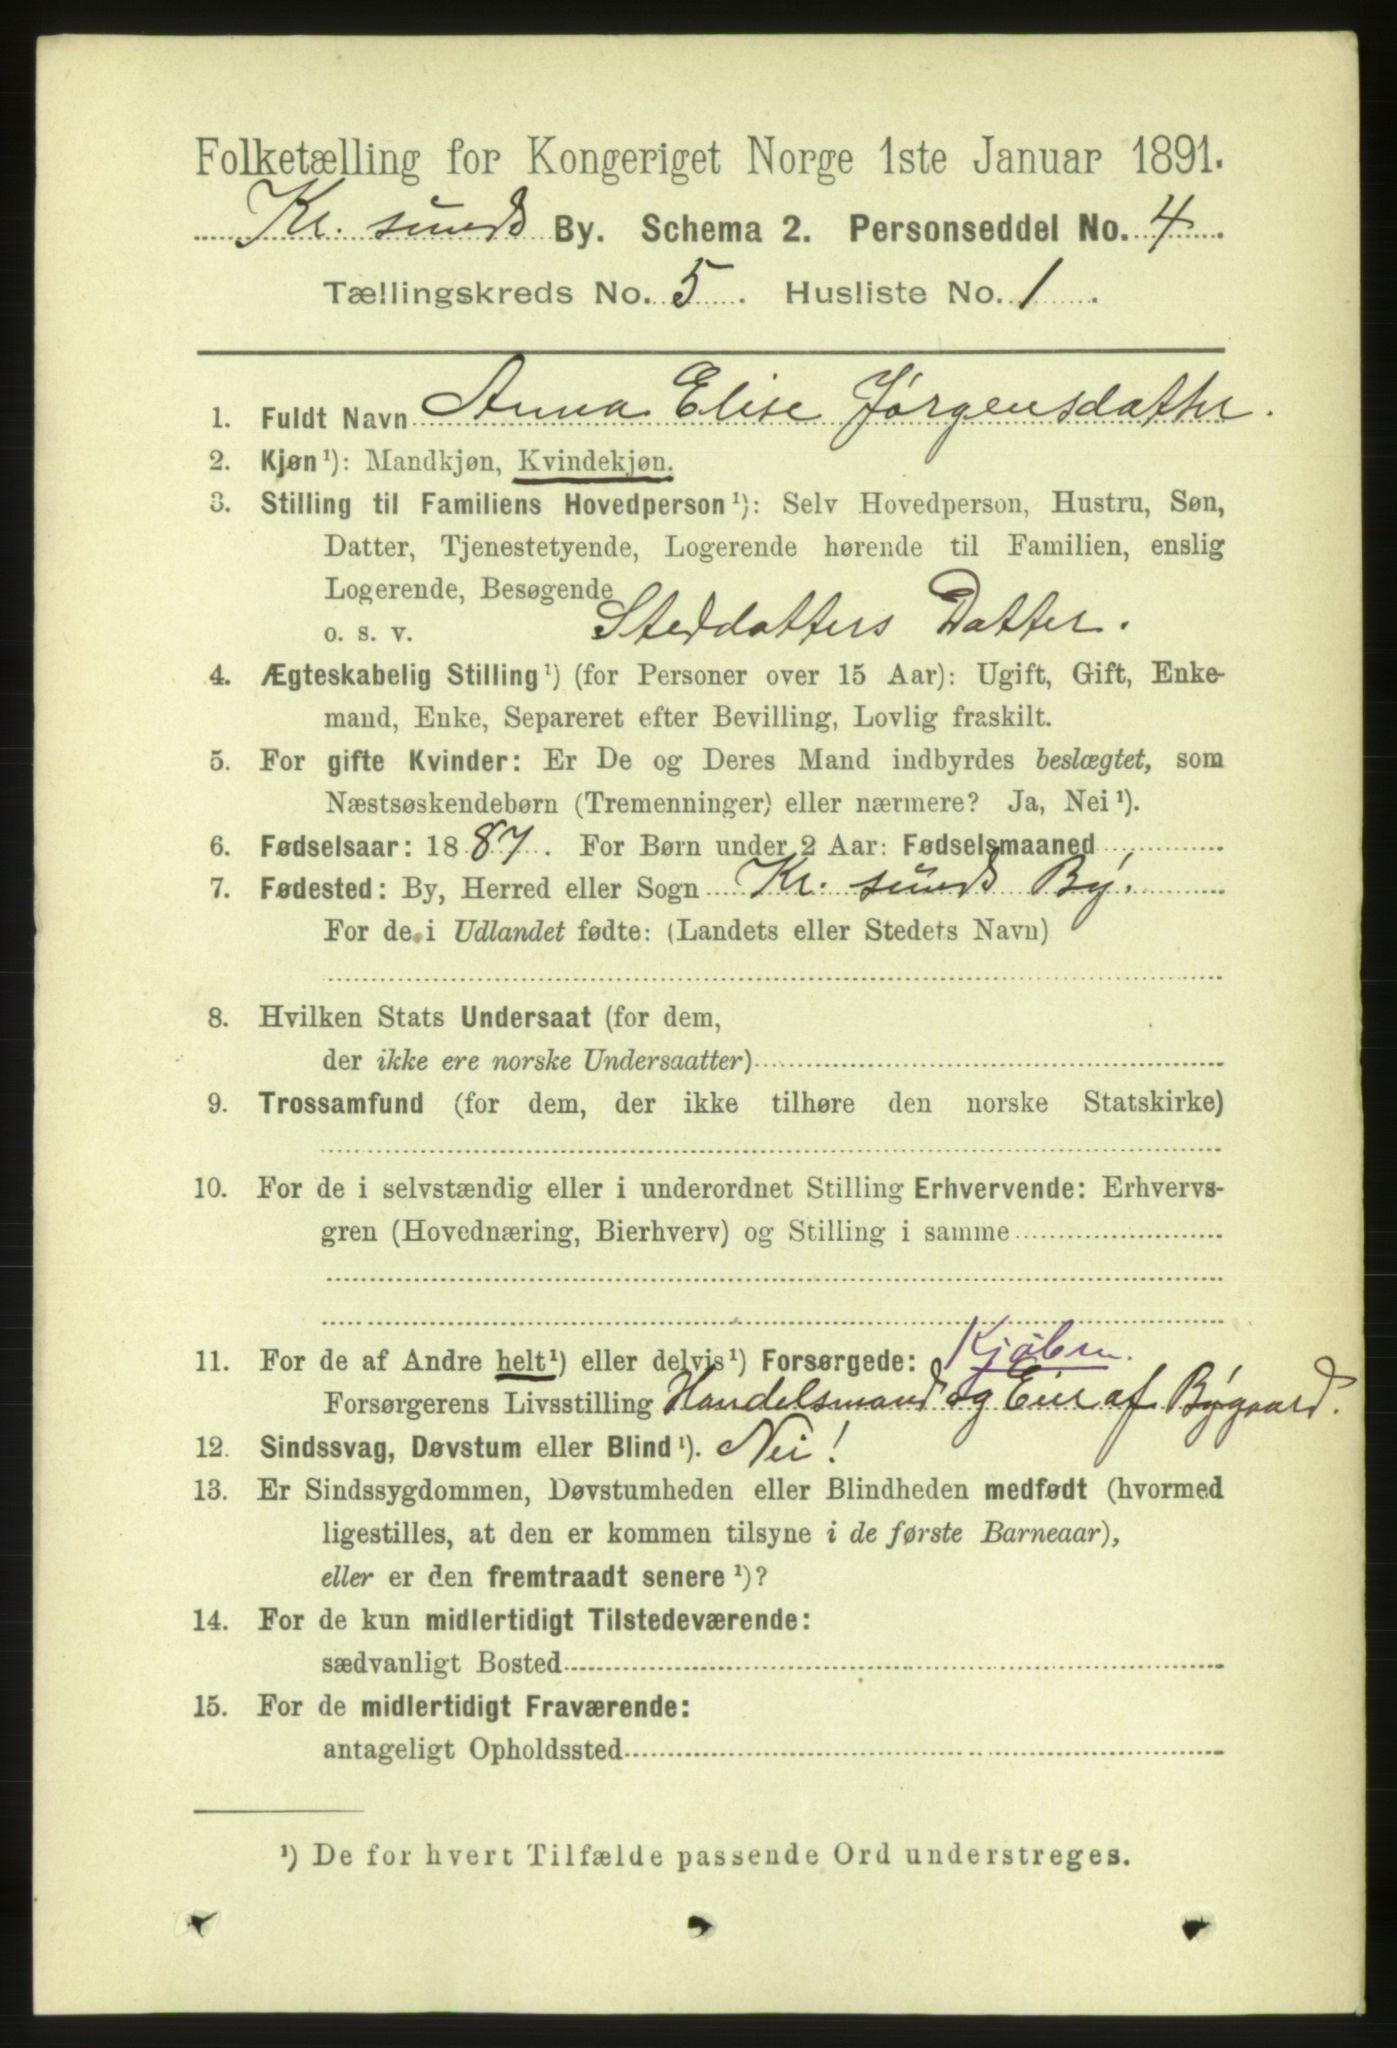 Folketælling for Kongeriget Norge 1ste Januar 1891.
Kr. sunds By. Schema 2. Personseddel No. 4.
Tællingskreds No. 5. Husliste No. 1.
1. Fuldt Navn Anna Elise Jørgensdatter.
2. Kjøn ¹): Mandkjøn, Kvindekjøn.
3. Stilling til Familiens Hovedperson ¹): Selv Hovedperson, Hustru, Søn,
Datter, Tjenestetyende, Logerende hørende til Familien, enslig
Logerende, Besøgende
o. s. v. Steddatters Datter.
4. Ægteskabelig Stilling ¹) (for Personer over 15 Aar): Ugift, Gift, Enke-
mand, Enke, Separeret efter Bevilling, Lovlig fraskilt.
5. For gifte Kvinder: Er De og Deres Mand indbyrdes beslægtet, som
Næstsøskendebørn (Tremenninger) eller nærmere? Ja, Nei ¹).
6. Fødselsaar: 1887. For Børn under 2 Aar: Fødselsmaaned
7. Fødested: By, Herred eller Sogn Kr. sunds By.
For de i Udlandet fødte: (Landets eller Stedets Navn)
8. Hvilken Stats Undersaat (for dem,
der ikke ere norske Undersaatter)
9. Trossamfund (for dem, der ikke tilhøre den norske Statskirke)
10. For de i selvstændig eller i underordnet Stilling Erhvervende: Erhvervs-
gren (Hovednæring, Bierhverv) og Stilling i samme
11. For de af Andre helt ¹) eller delvis ¹) Forsørgede: Kjøbm.
Forsørgerens Livsstilling Handelsmand og Eier af Bygaard.
12. Sindssvag, Døvstum eller Blind ¹). Nei!
13. Er Sindssygdommen, Døvstumheden eller Blindheden medfødt (hvormed
ligestilles, at den er kommen tilsyne i de første Barneaar),
eller er den fremtraadt senere ¹)?
14. For de kun midlertidigt Tilstedeværende:
sædvanligt Bosted
15. For de midlertidigt Fraværende:
antageligt Opholdssted
¹) De for hvert Tilfælde passende Ord understreges.